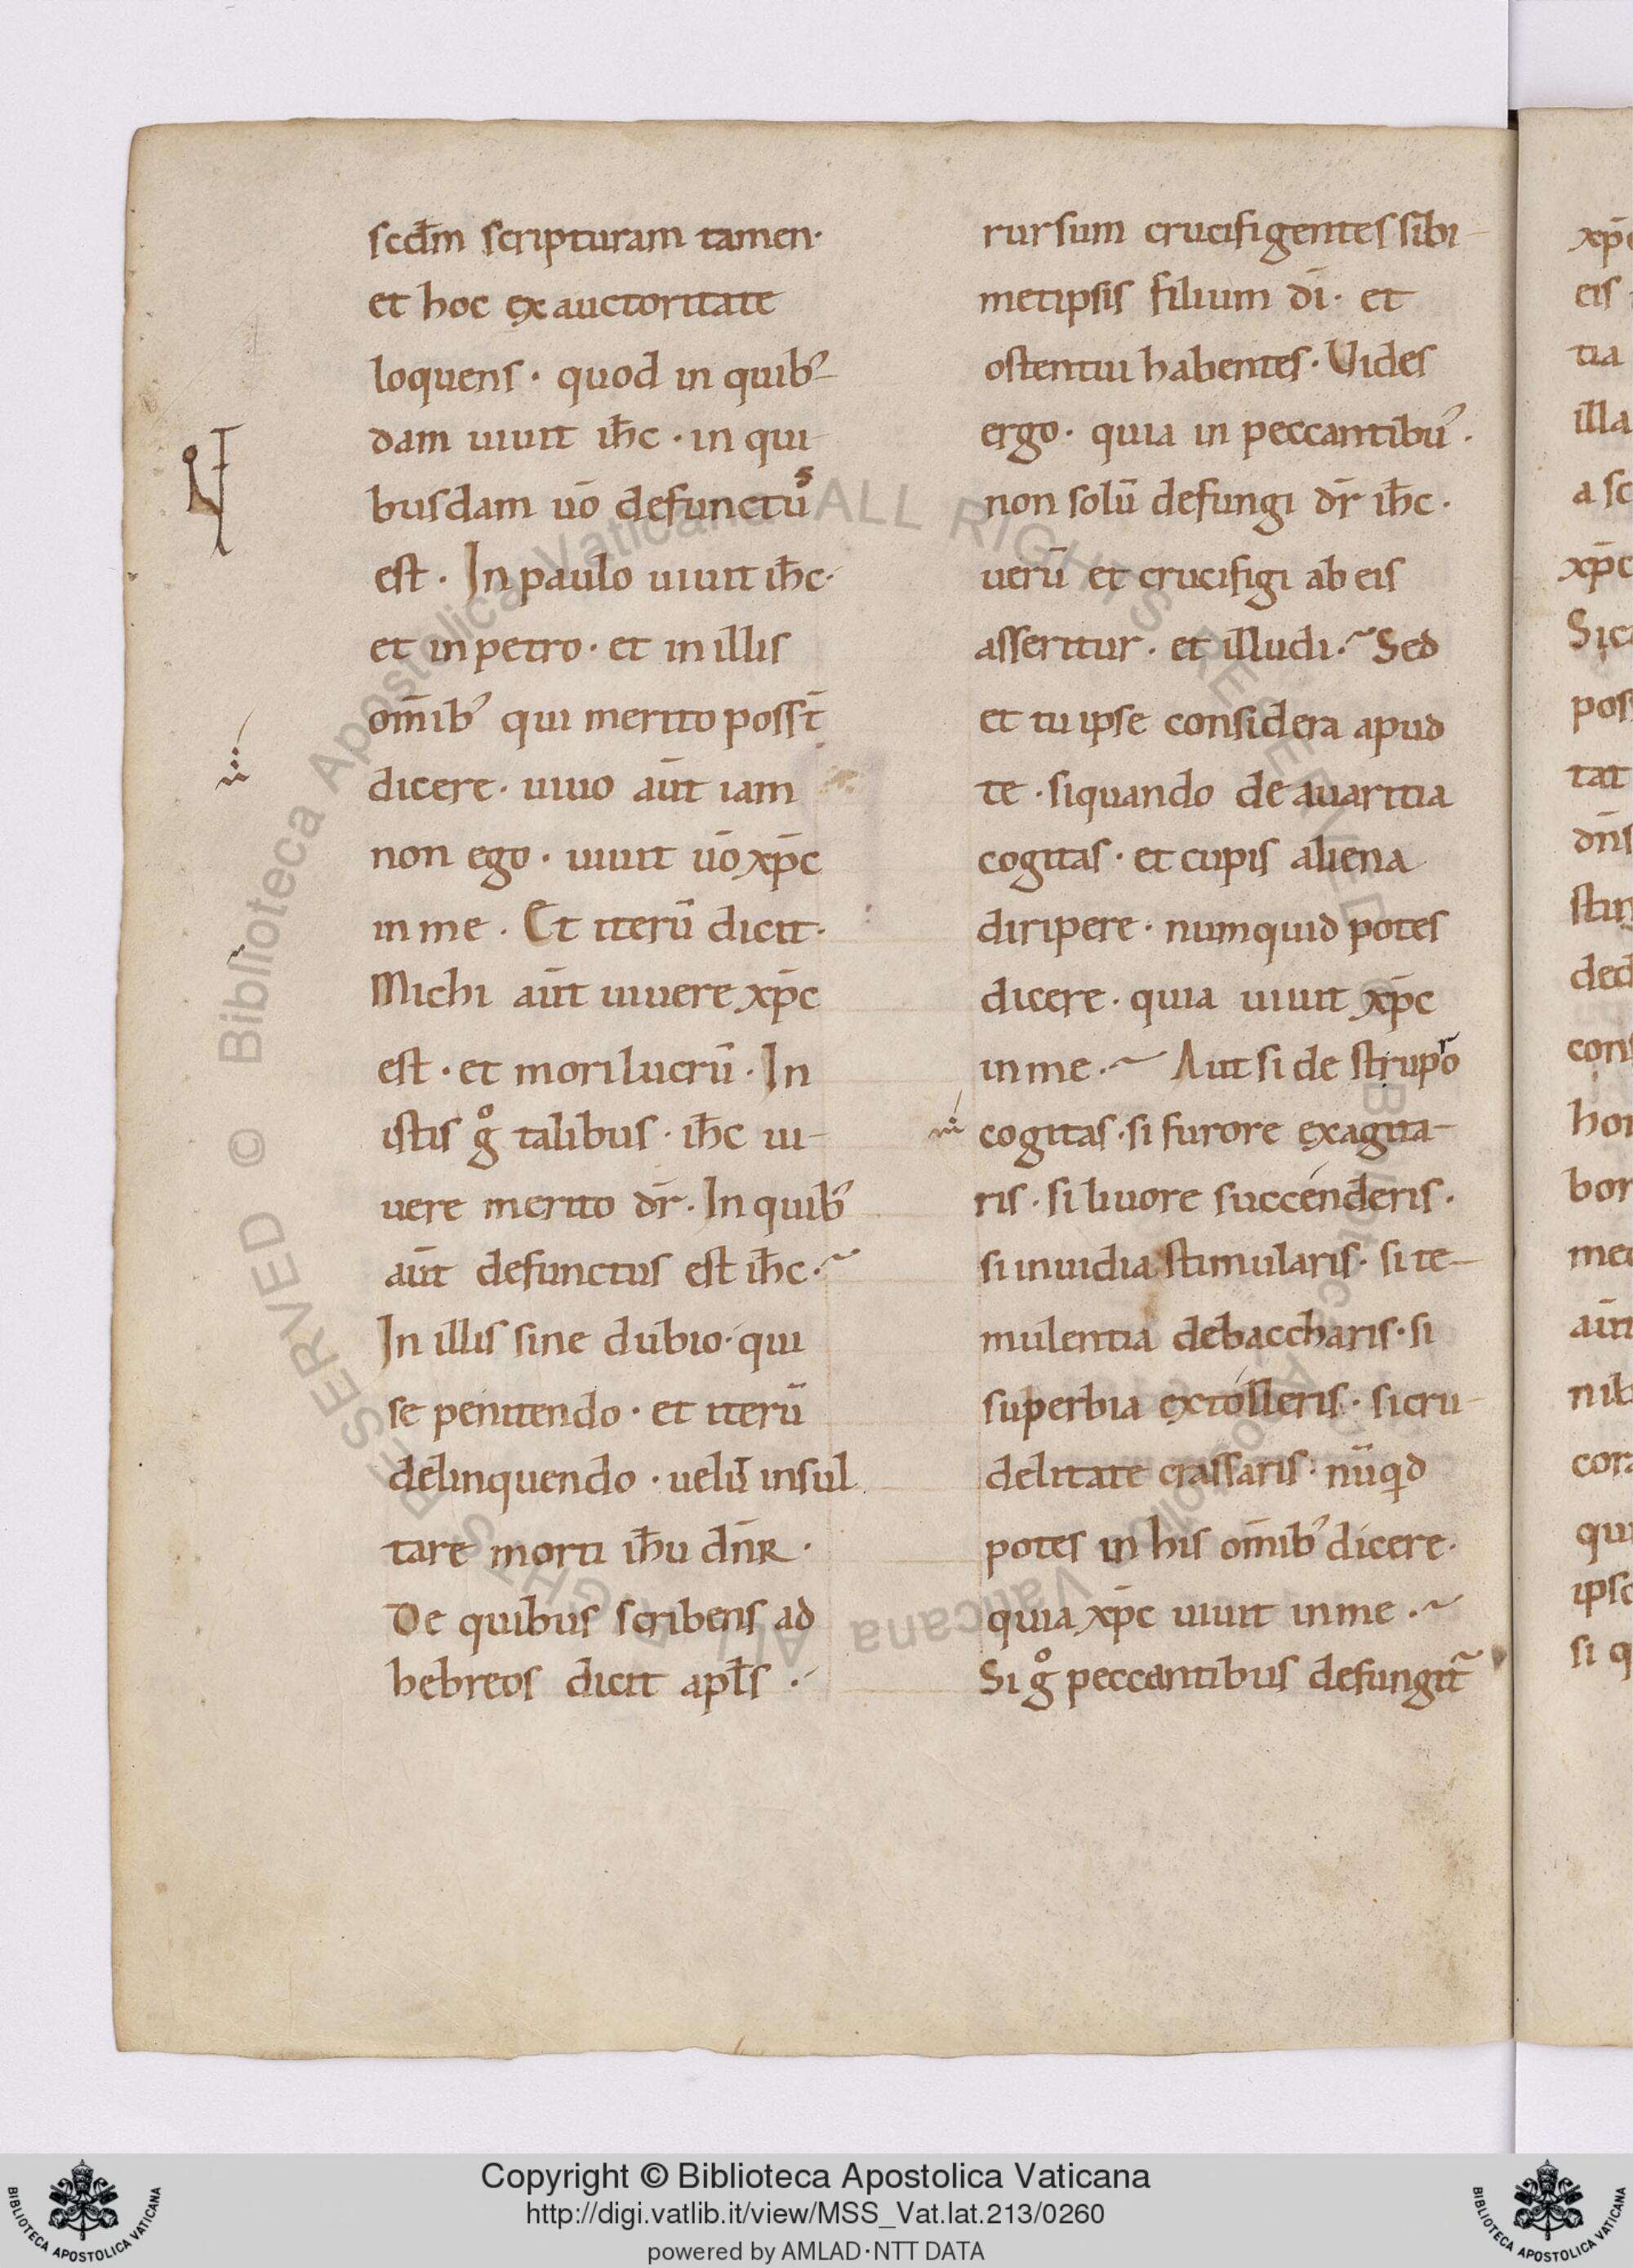 scđm scripturam tamen·
et hoc ex auctoritate
loquens · quod in quib᾽-
dam uiuit ih̄c · in qui-
busdam uō defunctūs
est · In paulo uiuit ih̄c·
et in petro · et in illis
om̄ib᾽ qui merito poss̄t
dicere · uiuo aūt iam
non ego · uiuit uō xp̄c
in me · Et iterū dicit·
Michi aūt uiuere xp̄c
est · et mori lucrū · In
istis g̊ talibus · ih̄c ui-
uere merito dr̄ · In quib᾽
aūt defunctus est ih̄c·
In illis sine dubio· qui
se penitendo · et iterū
delinquendo · uelut insul
tare morti ih̄u dn̄ʀ ·
De quibus scribens ad
hebreos dicit apl̄s ·
rursum crucifigentes sibi-
metipsis filium dī· et
ostentui habentes · Uides
ergo · quia in peccantibu᾽ ·
non solū defungi dr̄ ih̄c ·
uerū et crucifigi ab eis
asseritur · et illudi · Sed
et tu ipse considera apud
te · siquando de auaritia
cogitas · et cupis aliena
diripere · numquid potes
dicere · quia uiuit xp̄c
in me · Aut si de strupʳo
cogitas · si furore exagita-
ris · si liuore succénderis ·
si inuidia stimularis · si te-
mulentia debaccharis · si
superbia extólleris · si cru-
delitate crassaris · nūqd
potes in his om̄ib᾽ dicere·
quia xp̄c uiuit in me ·
Si g̊ peccantibus defungitᷓ
xp̄c
eis
tia
illa
a sc
xp̄c
Sic
pos
tat
dn̄s
stin
ded
con
hor
bor
med
aūt
nib
cora
qui
ipso
si q
© Biblioteca Apostolica Vaticana ALL RIGHTS RESERVED © Biblioteca Apostolica Vaticana ALL RIGHTS RESERVED
Copyright © Biblioteca Apostolica Vaticana
http://digi.vatlib.it/view/MSS_Vat.lat.213/0260
powered by AMLAD·NTT DATA
BIBLIOTECA APOSTOLICA VATICANA
BIBLIOTECA APOSTOLICA VATICANA